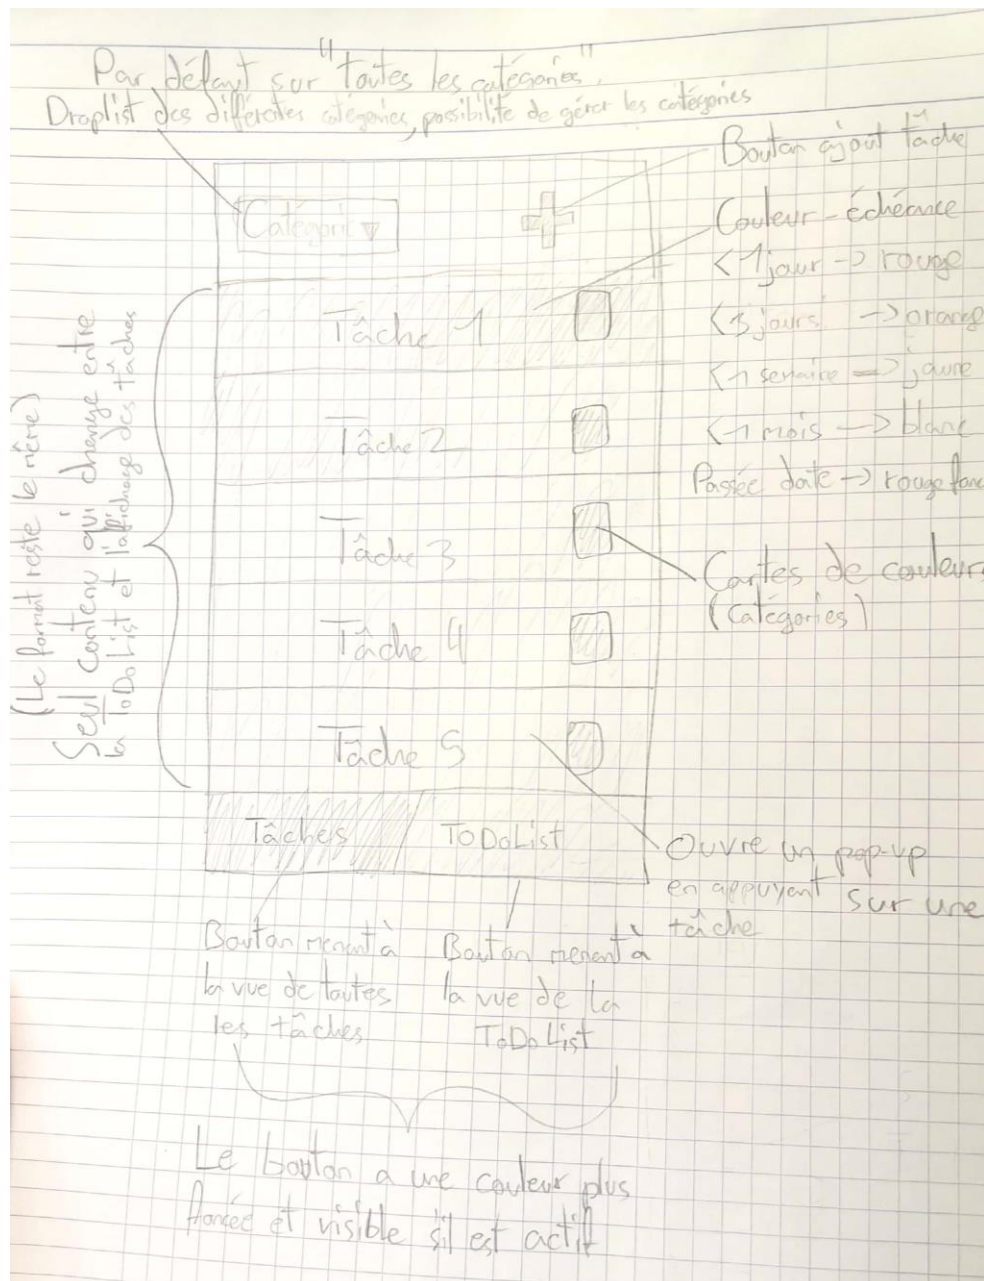 Par défaut sur "toutes les catégories".
Droplist des différentes catégories, possibilité de gérer les catégories
Bouton ajout tâche
Catégorie ▼
Couleur - échéance
< 1 jour -> rouge
< 3 jours -> orange
< 1 semaine -> jaune
< 1 mois -> blanc
Passée date -> rouge fonc
Tâche 1
Tâche 2
Tâche 3
Tâche 4
Tâche 5
Cartes de couleurs
(Catégories)
(Le format reste le même)
Seul contenu qui change entre
la ToDoList et l'affichage des tâches
Tâches
ToDoList
Ouvre un pop-up
en appuyant sur une
tâche
Bouton menant à
la vue de toutes
les tâches
Bouton menant à
la vue de la
ToDoList
Le bouton a une couleur plus
foncée et visible s'il est actif